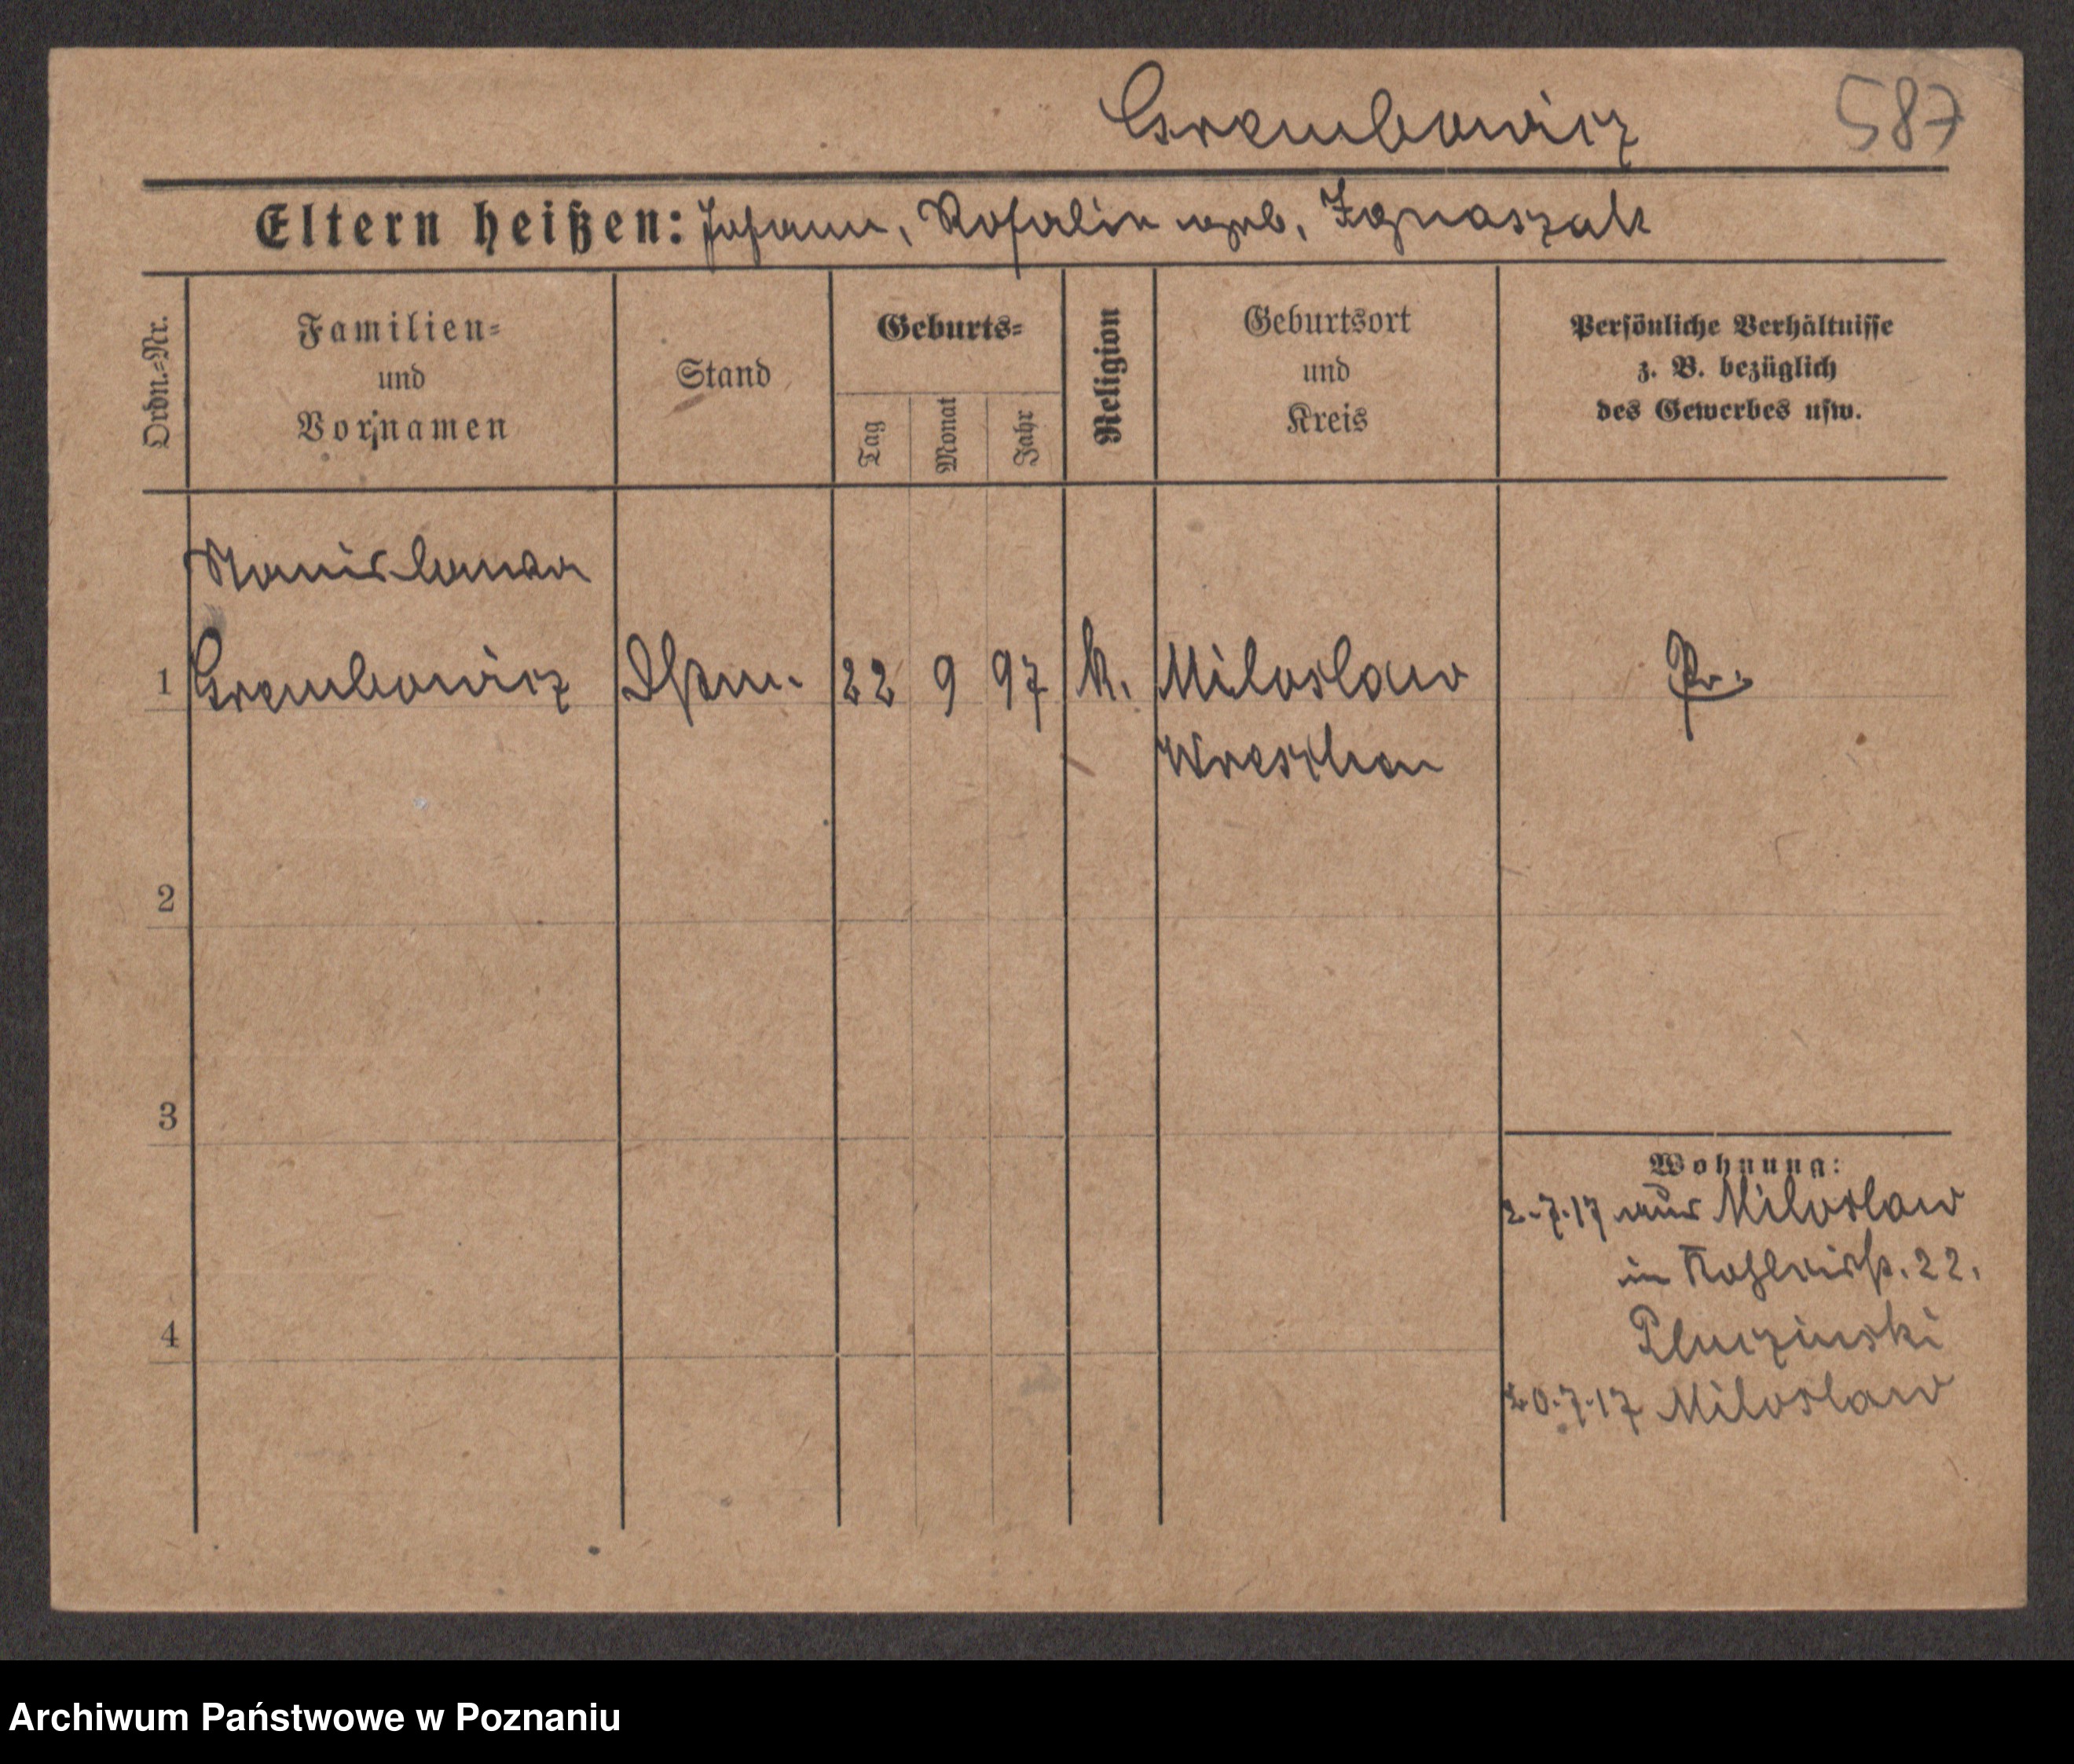 Grembowicz 587
Eltern heißen: Johann, Rosalie geb. Ignaszak
Ordn.-Nr.
Familien-
und
Vornamen
Stand
Geburts-
Tag
Monat
Jahr
Religion
Geburtsort
und
Kreis
Persönliche Verhältnisse
z. B. bezüglich
des Gewerbes usw.
Stanislawa
1 Grembowicz 22 9 97 k. Miloslaw Pr.
Wreschen
2
3
4
Wohnung:
2.7.17 aus Miloslaw
in 22.
Pluczinski
20.7.17 Miloslaw
Archiwum Państwowe w Poznaniu